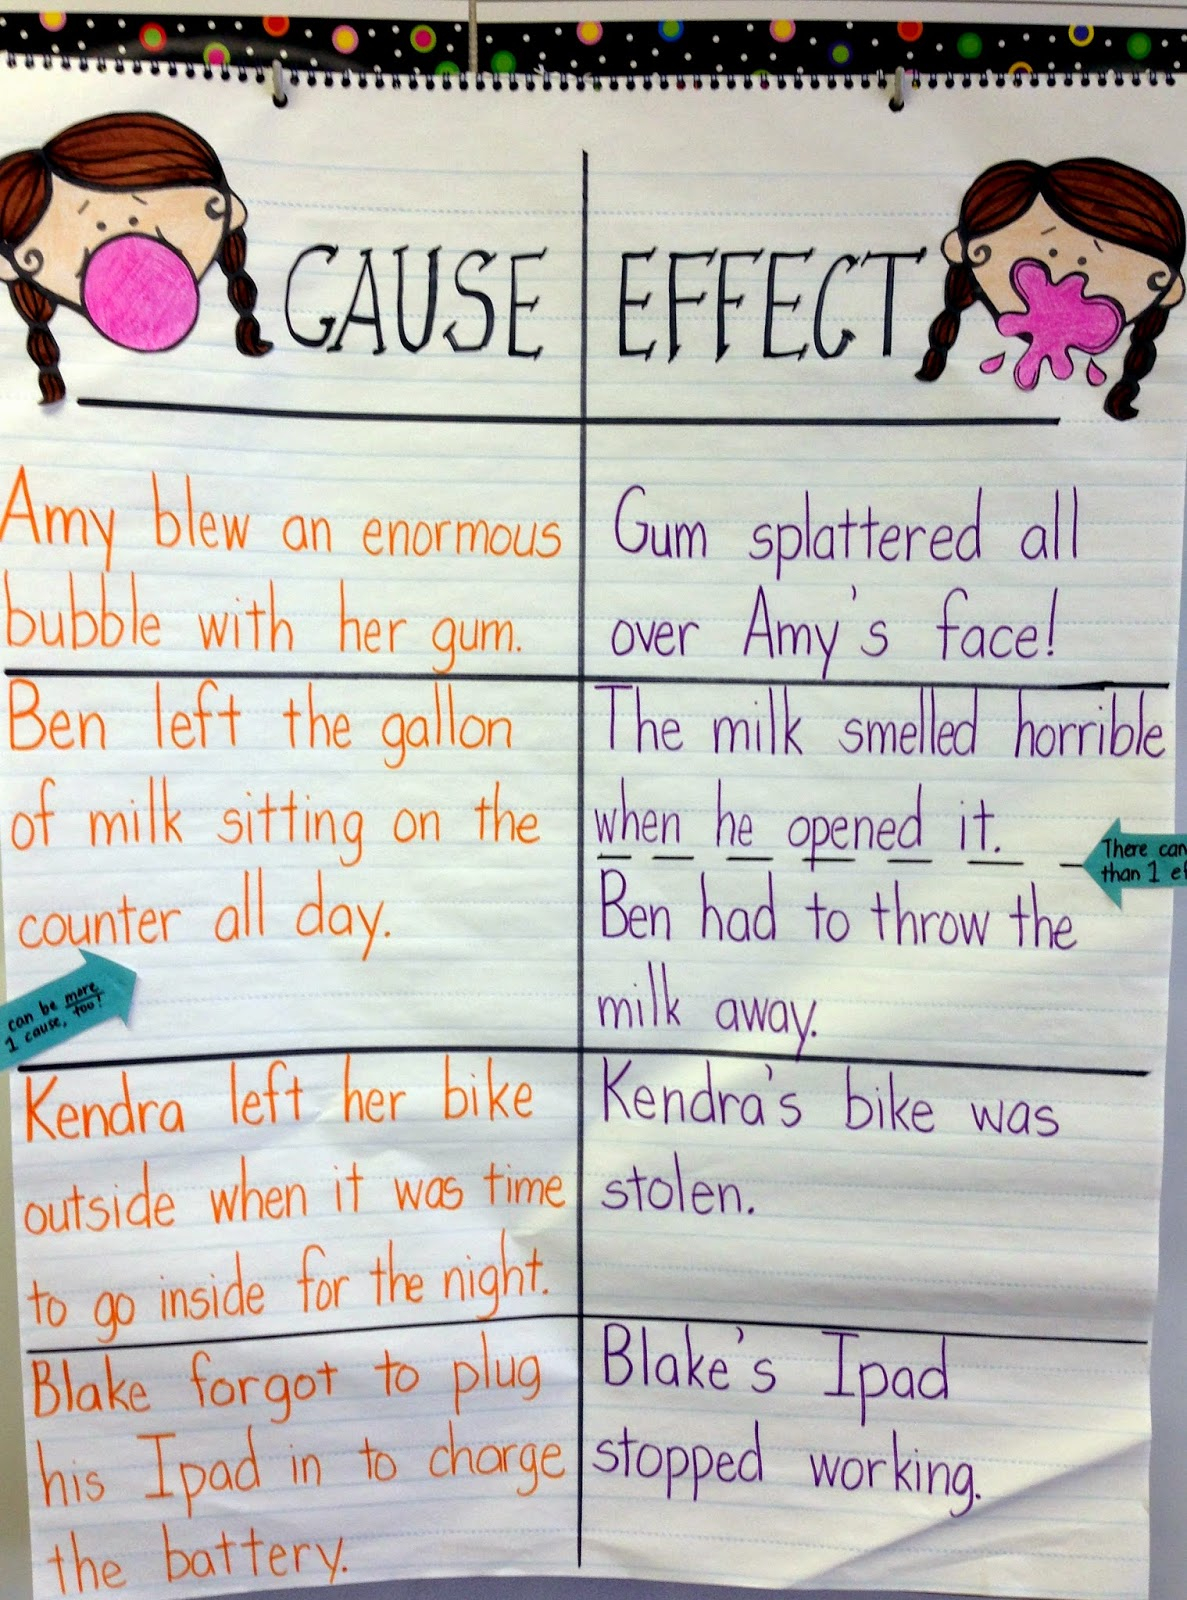 CAUSE
EFFECT
Amy blew an enormous
bubble with her gum.
Gum splattered all
over Amy's face!
Ben left the gallon
of milk sitting on the
counter all day.
can be more
1 cause, too!
The milk smelled horrible
when he opened it.
There can
than 1
Ben had to throw the
milk away.
Kendra left her bike
outside when it was time
to go inside for the night.
Kendra's bike was
stolen.
Blake forgot to plug
his Ipad in to charge
the battery.
Blake's Ipad
stopped working.